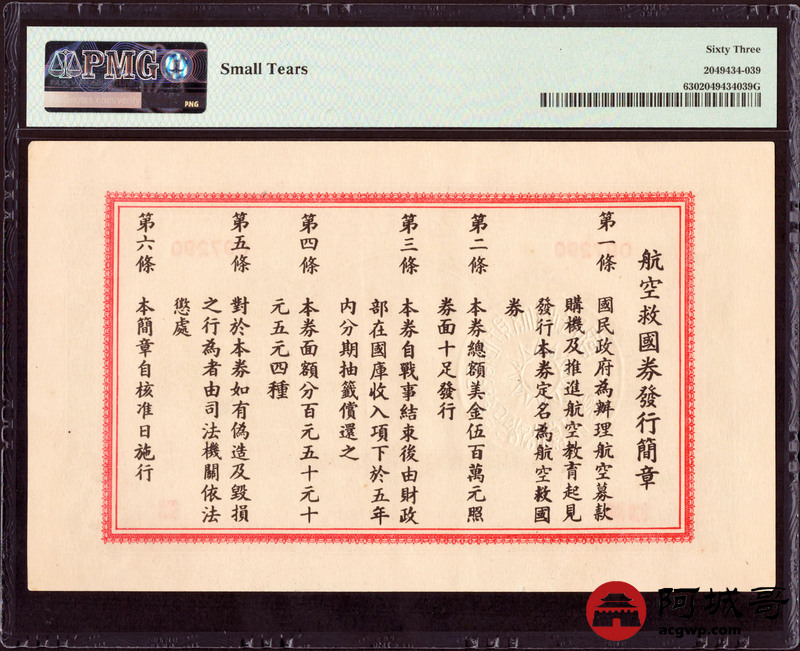 PMG
PNG
Small Tears
Sixty Three
2049434-039
6302049434039G
航空救國券發行簡章
第一條 國民政府為辦理航空募款
購機及推進航空教育起見
發行本券定名為航空救國
券
第二條 本券總額美金伍百萬元照
券面十足發行
第三條 本券自戰事結束後由財政
部在國庫收入項下於五年
內分期抽籤償還之
第四條 本券面額分百元五十元十
元五元四種
第五條 對於本券如有偽造及毀損
之行為者由司法機關依法
懲處
第六條 本簡章自核准日施行
阿城哥
acgwp.com